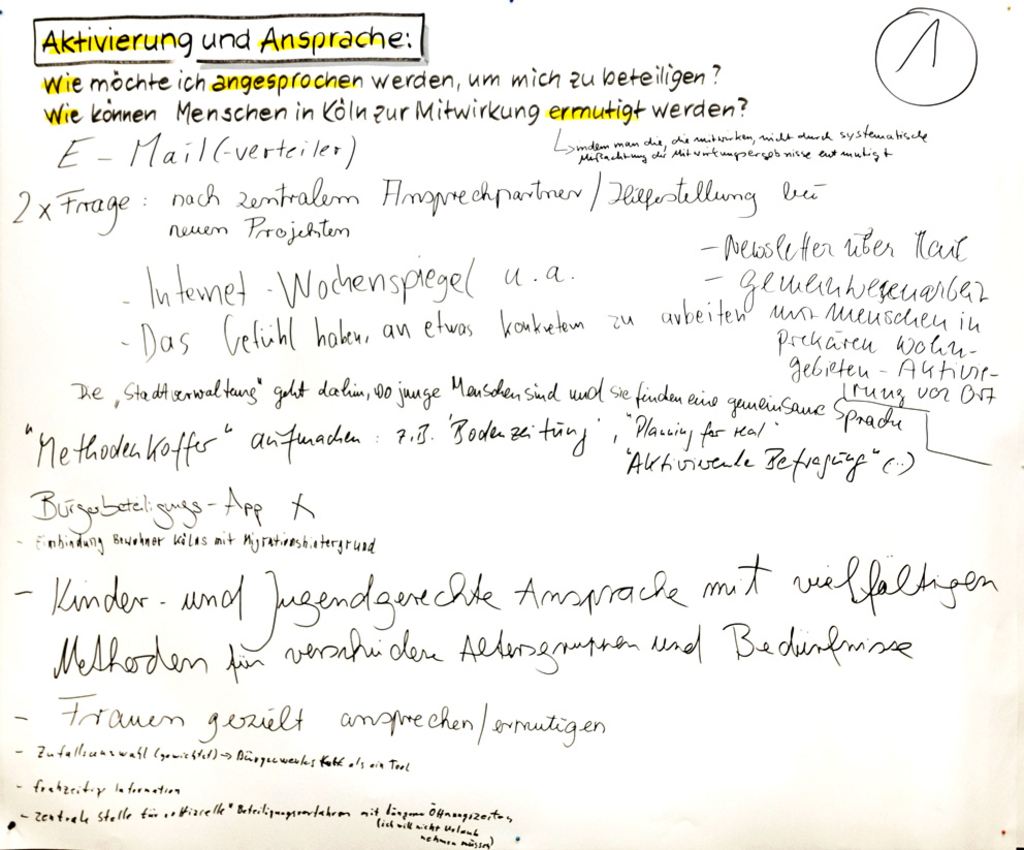 Aktivierung und Ansprache:
1
Wie möchte ich angesprochen werden, um mich zu beteiligen?
Wie können Menschen in Köln zur Mitwirkung ermutigt werden?
↳ indem man die, die mitwirken, nicht durch systematische
Mißachtung der Mitwirkungsergebnisse entmutigt
E-Mail(-verteiler)
2x Frage: nach zentralem Ansprechpartner/Hilfestellung bei
neuen Projekten
- Newsletter über Mail
- Gemeinwesenarbeit
mit Menschen in
prekären Wohn-
gebieten - Aktivie-
rung vor Ort
- Internet - Wochenspiegel u.a.
- Das Gefühl haben, an etwas konkretem zu arbeiten
Die „Stadtverwaltung" geht dahin, wo junge Menschen sind und sie finden eine gemeinsame Sprache
"Methodenkoffer" aufmachen: z.B. 'Bodenzeitung', "Planning for real"
"Aktivierende Befragung" (..)
Bürgerbeteiligungs-App X
- Einbindung Bewohner Kölns mit Migrationshintergrund
- Kinder- und Jugendgerechte Ansprache mit vielfältigen
Methoden für verschiedene Altersgruppen und Bedürfnisse
- Frauen gezielt ansprechen/ermutigen
- Zufallsauswahl (gewichtet) → als ein Tool
- frühzeitige Information
- zentrale Stelle für "offizielle" Beteiligungsverfahren mit längeren Öffnungszeiten,
(ich will nicht Urlaub
nehmen müssen)